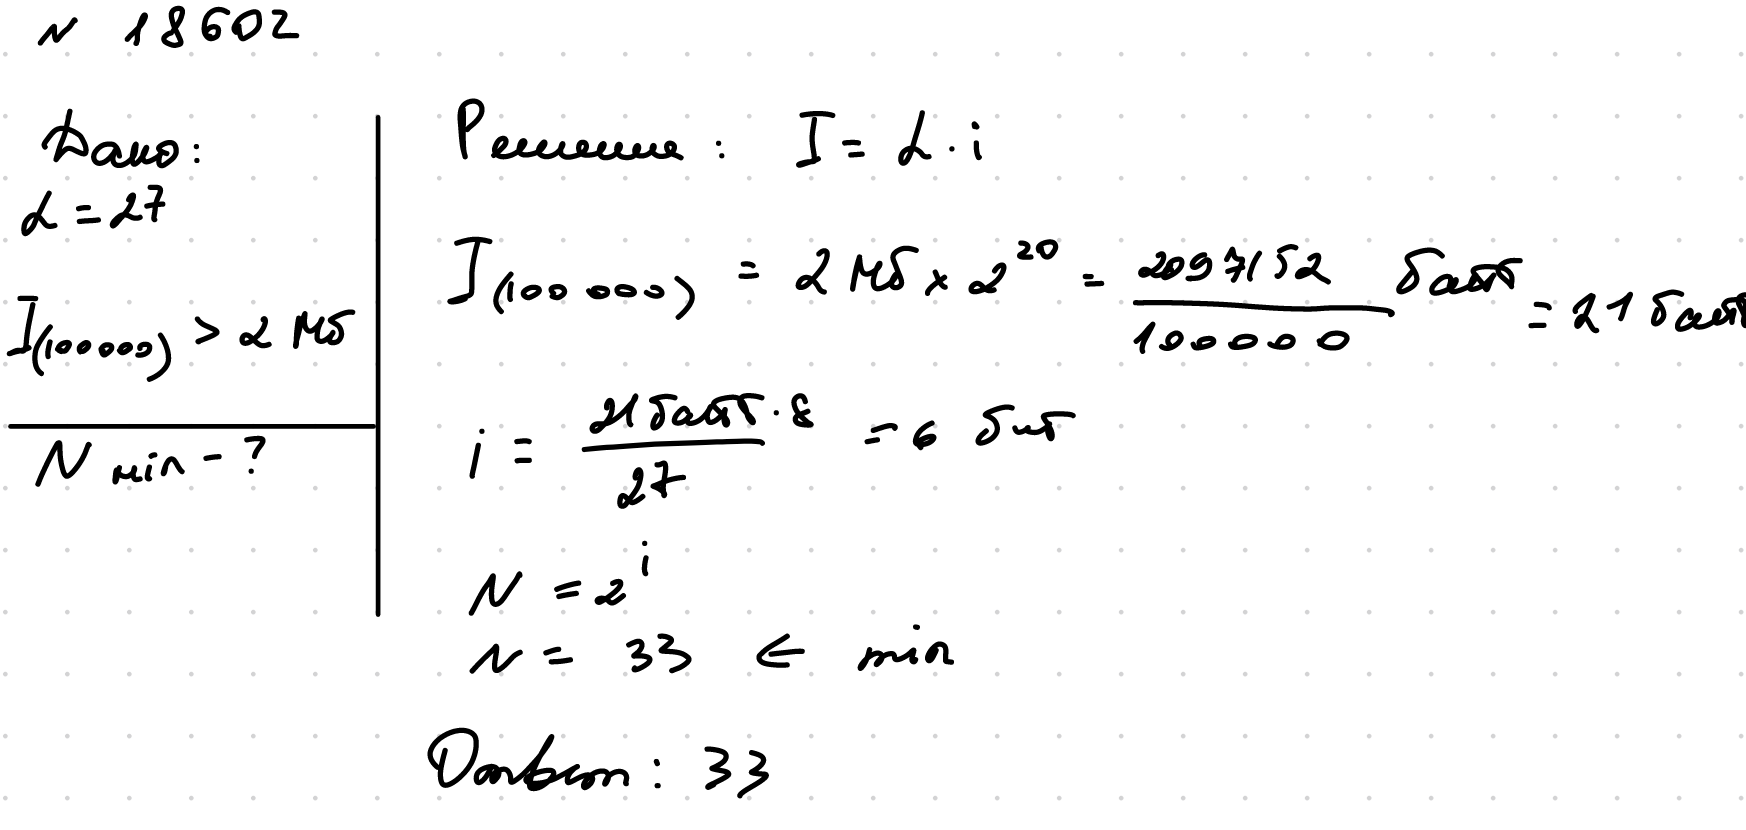 N 18602
Дано:
L = 27
I(100 000) > 2 Мб
N min - ?
Решение: I = L · i
I(100 000) = 2 Мб × 2^20 = 2097152 / 100000 байт = 21 байт
i = 21 байт · 8 / 27 = 6 бит
N = 2^i
N = 33 ← min
Ответ: 33